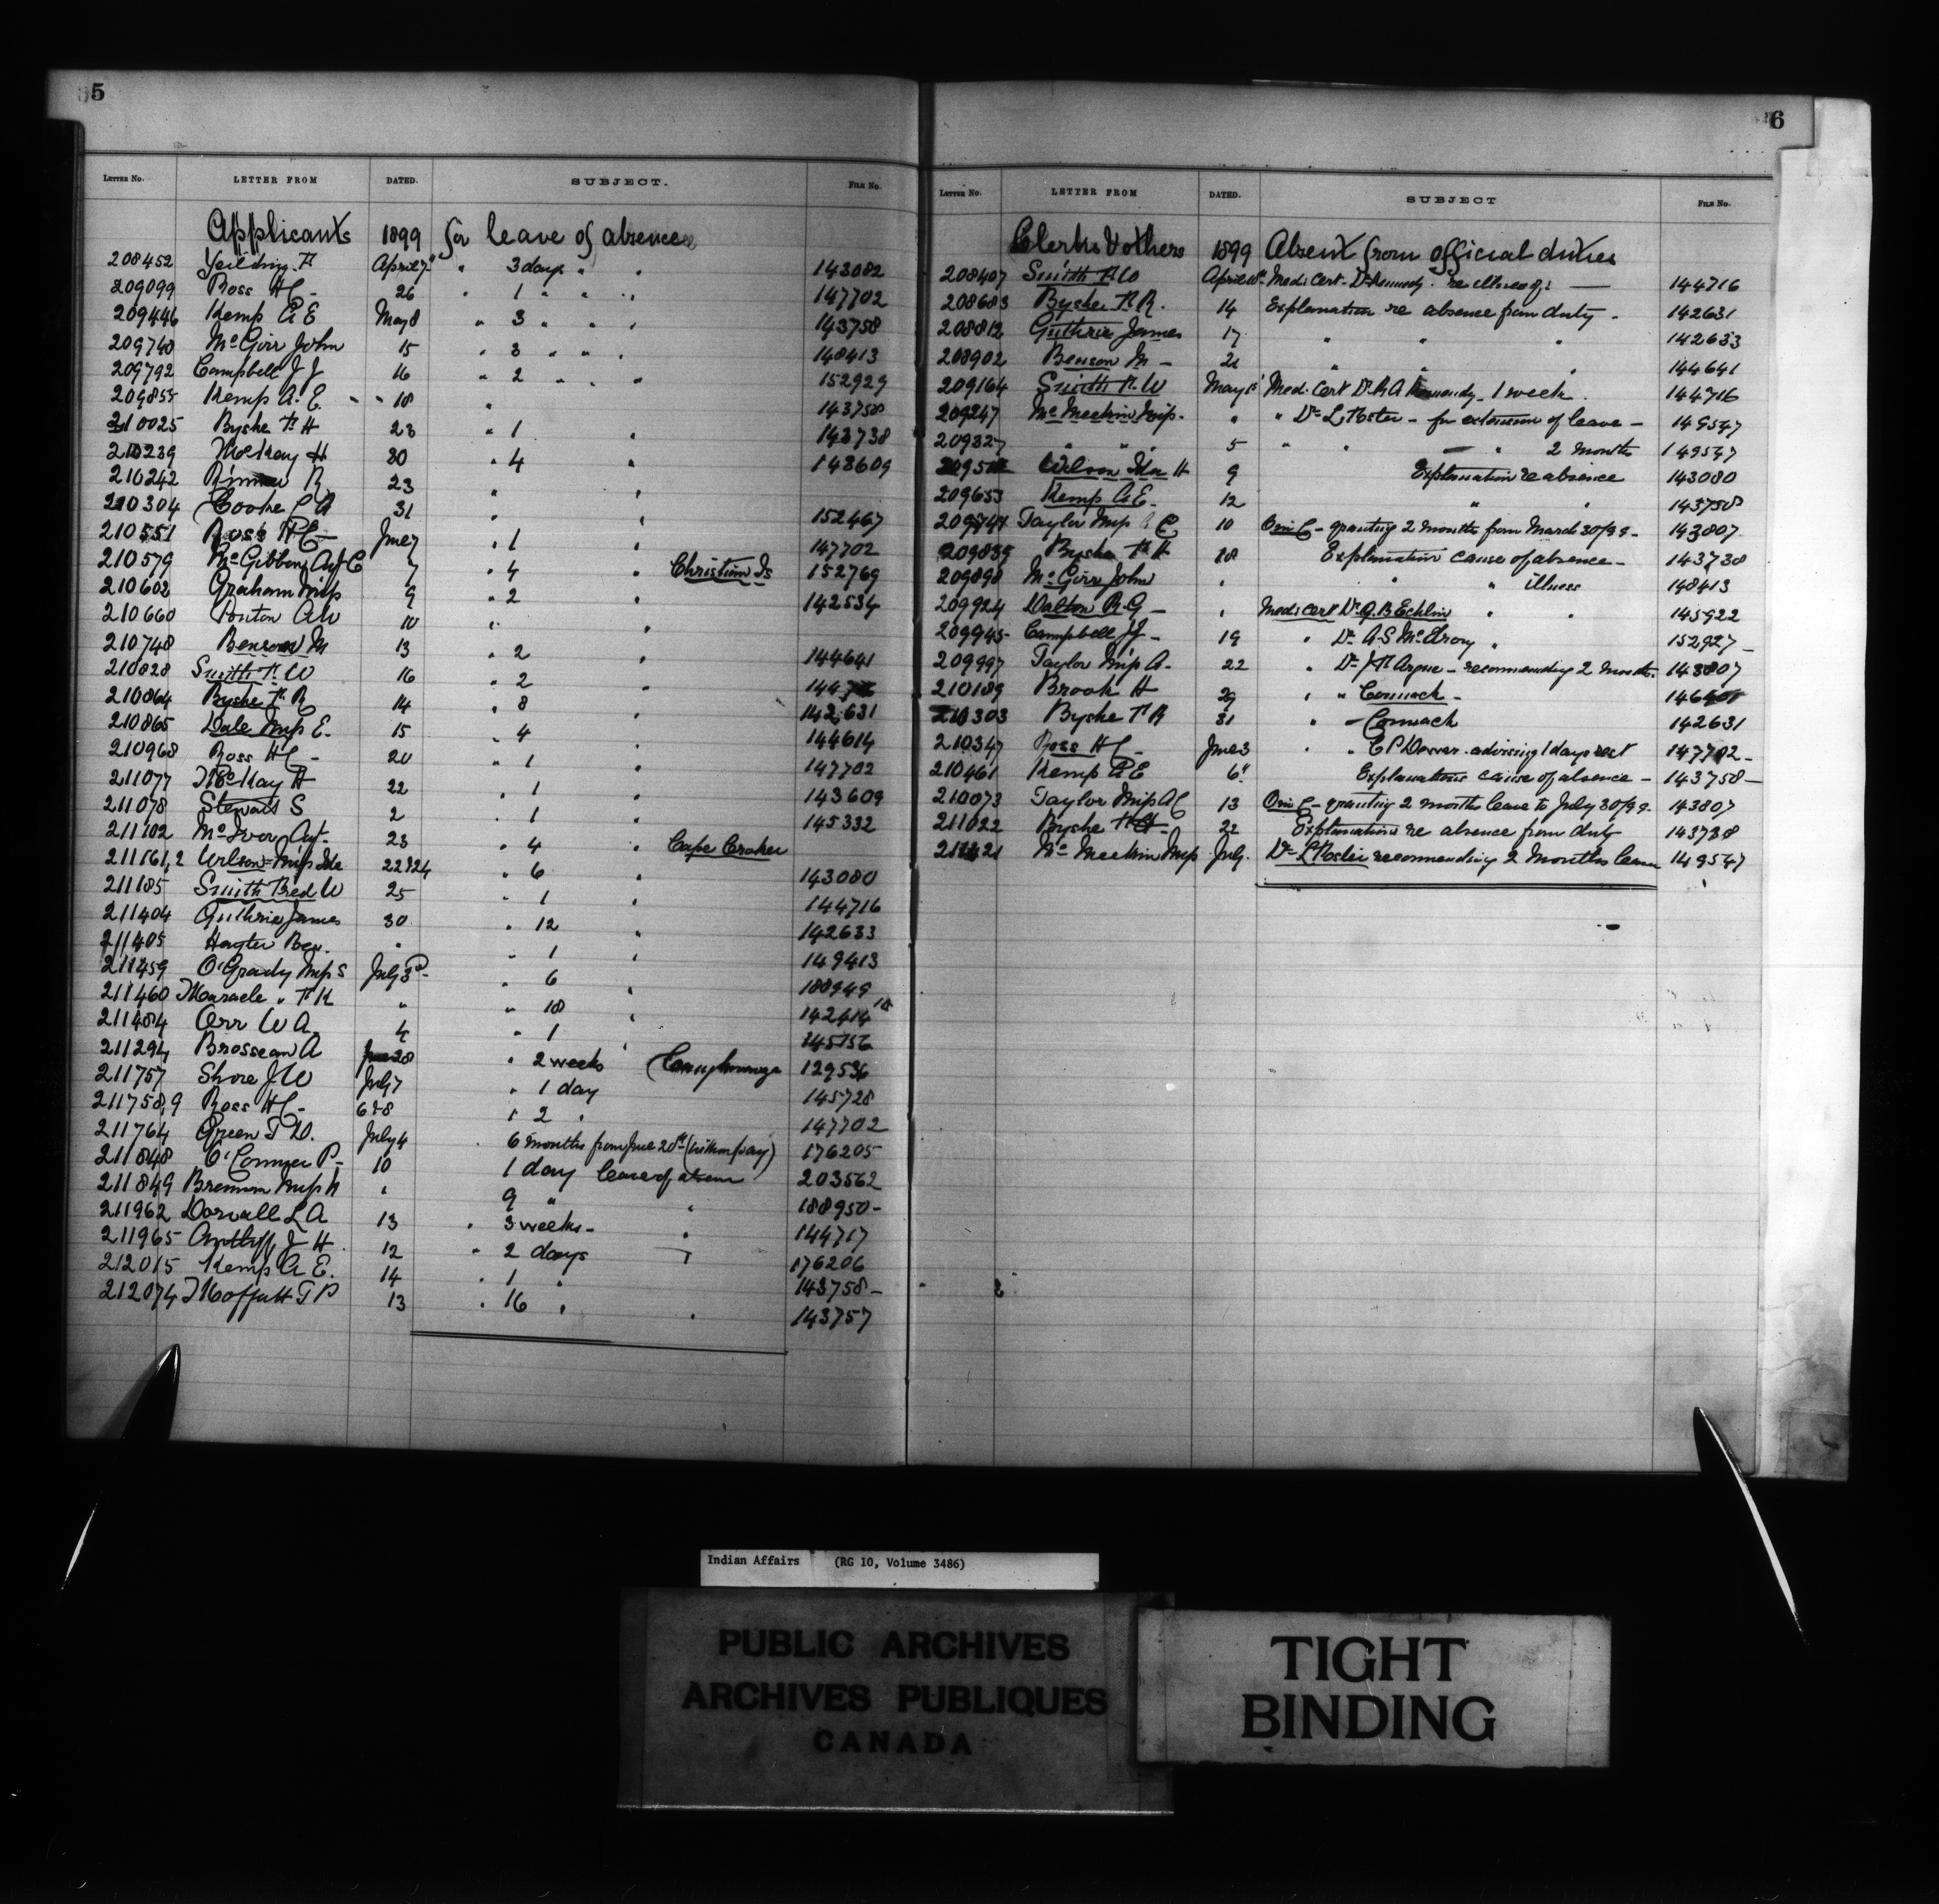 5
LETTER NO. LETTER FROM DATED. SUBJECT. FILE NO.
Applicants 1899 for leave of absence
208452 Yeilding F. April 7" " 3 days " " 143082
209099 Ross H C - 26 " 1 " " " 147702
209446 Kemp A E May 8 " 3 " " " 143758
209740 McGirr John 15 " 3 " " " 148413
209792 Campbell J J 16 " 2 " " " 152929
209855 Kemp A. E. " " 18 " 143758
210025 Byshe F H 23 " 1 " 143738
210239 McKay H 30 " 4 " 143609
210242 R 23 " "
210304 Cooke C A 31 " " 152467
210551 Ross H C - June 7 " 1 " 147702
210579 McGibbon Agt C 7 " 4 " Christian Is 152769
210602 Graham Miss 9 " 2 " 142534
210660 Ponton A W 10 " "
210748 Benson M 13 " 2 " 144641
210828 Smith F. W 16 " 2 "
210864 Byshe F R 14 " 8 " 142631
210865 Dale Miss E. 15 " 4 " 144614
210968 Ross H C - 20 " 1 " 147702
211077 McKay H 22 " 1 " 143609
211078 Stewart S 2 " 1 " 145332
211102 McIvor Agt. 23 " 4 " Cape Croker
211161,2 Wilson Miss Ida 22 & 24 " 6 " 143080
211185 Smith Fred W 25 " 1 " 144716
211404 Guthrie James 30 " 12 " 142633
211405 Hayter Ben. " " 1 " 149413
211459 O'Grady Miss S July 3d " 6 " 188949
211460 Maracle " F K " " 18 " 142414
211484 Orr W A 4 " 1 " 145156
211294 Brosseau A June 28 " 2 weeks Caughnawaga 129536
211757 Shore J W July 7 " 1 day 145728
211758,9 Ross H C - 6 & 8 " 2 " 147702
211764 Green T D. July 4 " 6 months from June 20th (without pay) 176205
211848 O'Connor P - 10 1 day leave of absence 203562
211849 Brennan Miss " 9 " " 188950 -
211962 Dorvall L A 13 " 3 weeks - " 144717
211965 Antliff J H 12 " 2 days " 176206
212015 Kemp A E. 14 " 1 " 143758 -
212074 Moffatt T P 13 " 16 " " 143757
6
LETTER NO. LETTER FROM DATED. SUBJECT FILE NO.
Clerks & others 1899 Absent from official duties
208407 Smith F W April Med: Cert - Dr Kennedy - re illness of: 144716
208683 Byshe F R. 14 Explanation re absence from duty - 142631
208812 Guthrie James 17 " " " 142633
208902 Benson M - 21 " " " 144641
209164 Smith F. W May 1st Med: Cert Dr R A Kennedy - 1 week. 144716
209247 McMeekin Miss. " " Dr L Foster - for extension of leave - 149547
209327 " " 5 " " " 2 months 149547
Wilson Ida H 9 Explanation re absence 143080
209653 Kemp A E. 12 " " 143758
209744 Taylor Miss A C 10 O in C - granting 2 months from March 30/99 - 143807
209839 Byshe F H 18 Explanation cause of absence - 143738
209898 McGirr John " " " illness 148413
209924 Dalton R. G - " Med: cert Dr G. B Echlin " " 145922
209945 - Campbell J J - 19 " Dr A. S McElroy " 152927 -
209997 Taylor Miss A - 22 " Dr J F Argue - recommending 2 months. 143807
210189 Brook H 29 " " Cormack -
210303 Byshe F R 31 " - Cormack 142631
210347 Ross H C - June 3 " " C P Dewar - advising 1 days rest 147702 -
210461 Kemp A E 6" Explanation cause of absence - 143758 -
210073 Taylor Miss A C 13 O in C - granting 2 months leave to July 30/99 - 143807
211022 Byshe F H 22 Explanation re absence from duty 143738
211421 McMeekin Miss July. Dr L Foster recommending 2 months leave 149547
Indian Affairs (RG 10, Volume 3486)
PUBLIC ARCHIVES
ARCHIVES PUBLIQUES
CANADA
TIGHT
BINDING